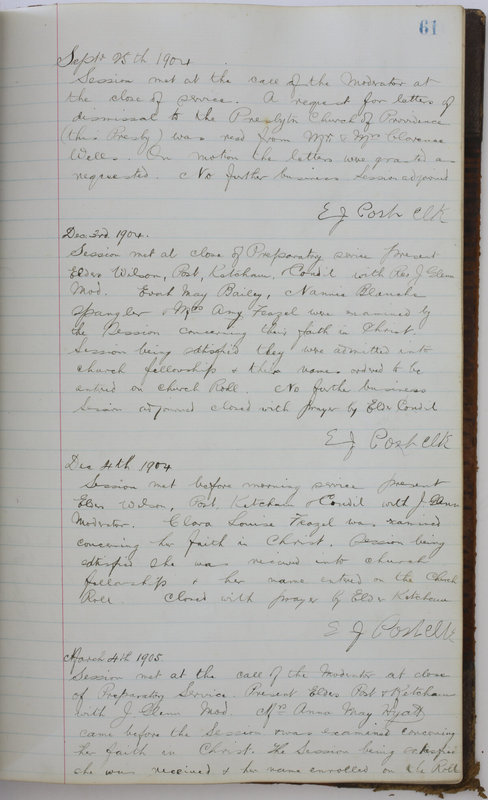 61
Sept 25th 1904
Session met at the call of the Moderator at
the close of service. A request for letters of
dismissal to the Presbytn Church of Providence
(this Presby) was read from Mr & Mrs Clarence
Wells. On motion the letters were granted as
requested. No further business Session adjourned
E J Post Clk
Dec 3rd 1904.
Session met at close of Preparatory service present
Elders Wilson, Post, Ketcham & Condit with Rev J Glenn
Mod. May Bailey, Nannie Blanche
Spangler & Mrs Amy Feazel were examined by
the Session concerning their faith in Christ.
Session being satisfied they were admitted into
church fellowship & their names ordered to be
entered on Church Roll. No further business
Session adjourned closed with prayer by Elder Condit
E J Post Clk
Dec 4th 1904
Session met before morning service present
Elders Wilson, Post, Ketcham & Condit with J. Glenn
Moderator. Clara Louise Feazel was examined
concerning her faith in Christ. Session being
satisfied she was received into church
fellowship & her name entered on the Church
Roll. Closed with prayer by Elder Ketcham
E J Post Clk
March 4th 1905.
Session met at the call of the Moderator at close
of Preparatory Service. Present Elders Post & Ketcham
with J. Glenn Mod. Mrs Anna May Hyatt
came before the Session & was examined concerning
her faith in Christ. The Session being satisfied
she was received & her name enrolled on the Roll